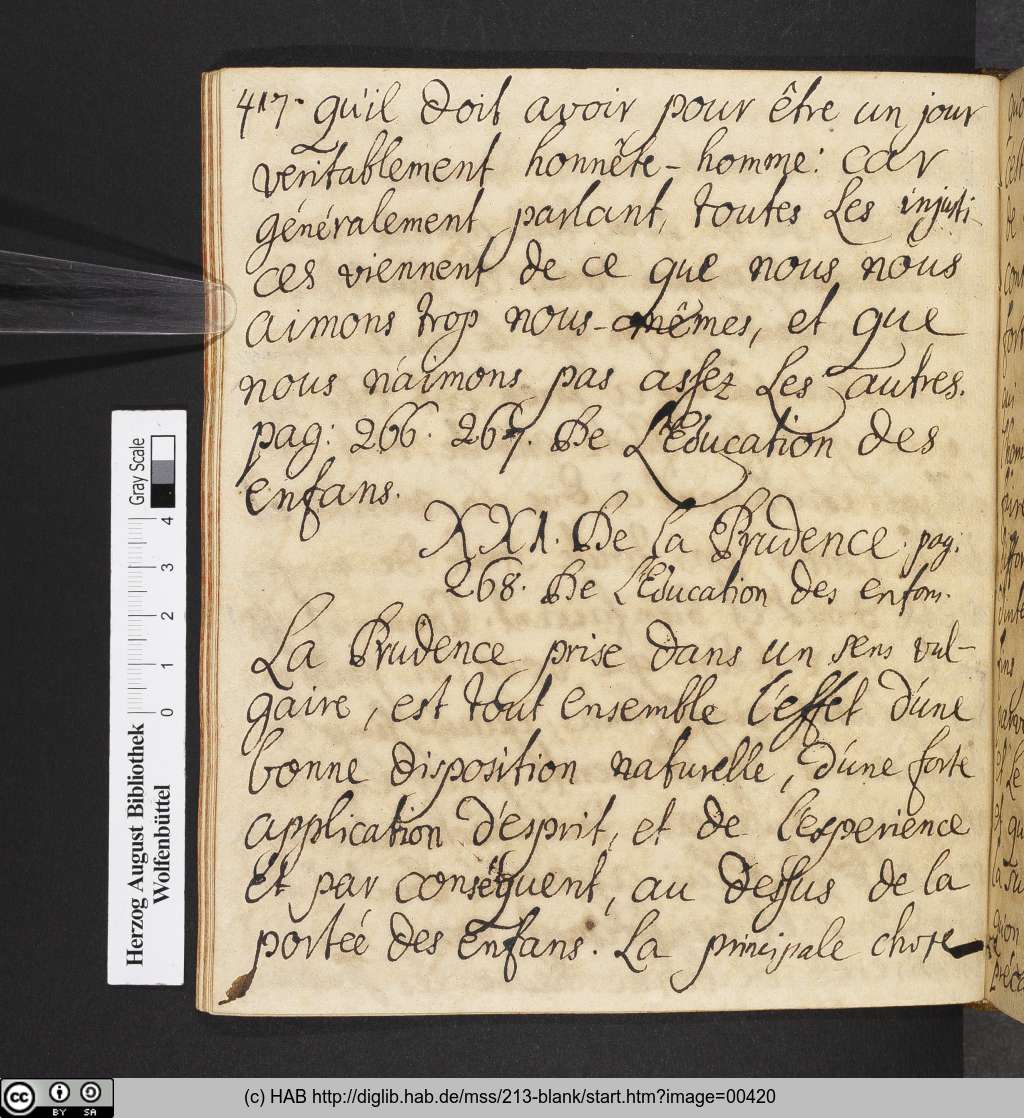 417. qu'il doit avoir pour être un jour
veritablement honnête-homme: car
généralement parlant, toutes les injusti-
ces viennent de ce que nous nous
aimons trop nous-mêmes, et que
nous n'aimons pas assez les autres.
pag: 266. 267. De L'Education des
enfans.
XXI. De la Prudence. pag:
268. De L'Education des enfans.
La Prudence prise dans un sens vul-
gaire, est tout ensemble l'effet d'une
bonne disposition naturelle, d'une forte
application d'esprit, et de l'experience
Et par conséquent, au dessus de la
portée des enfans. La principale chose
Herzog August Bibliothek
Wolfenbüttel
0 1 2 3 4
Gray Scale
cc BY SA
(c) HAB http://diglib.hab.de/mss/213-blank/start.htm?image=00420